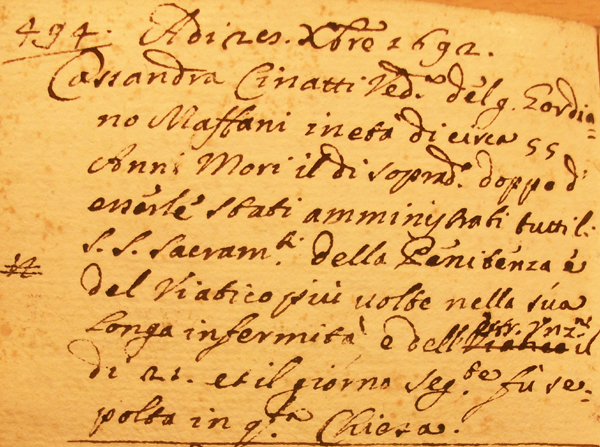 494. Adi 21. Xbre 1692.
Cassandra Cinatti Ved.a del q. Gordia=
no Maffani in età di circa 55
Anni Morì il dì soprad.o doppo d'
esserle stati amministrati tutti li
S.S. Sacram.ti della Penitenza e
del Viatico più volte nella sua
Longa infermità e dell' Estr. Vnz.ne il
dì 21. et il giorno seg.te fù se=
polta in q.ta Chiesa.